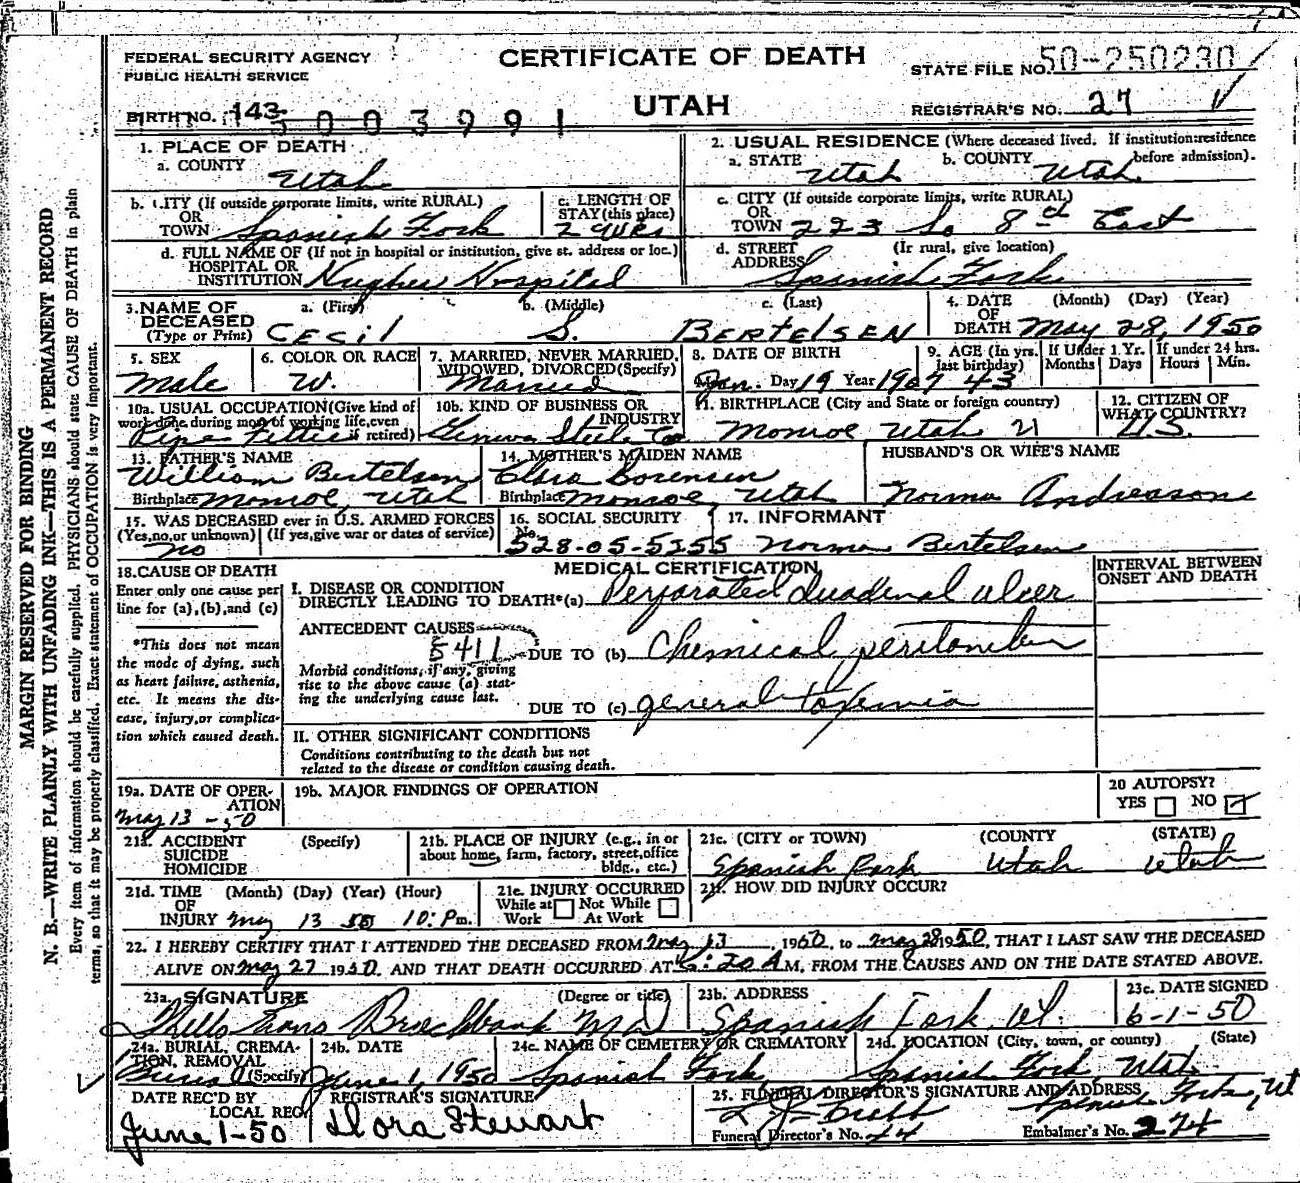 CERTIFICATE OF DEATH
FEDERAL SECURITY AGENCY
PUBLIC HEALTH SERVICE
STATE FILE NO. 50-250230
UTAH
REGISTRAR'S NO. 27
BIRTH NO. 143
5003991
1. PLACE OF DEATH
a. COUNTY Utah
2. USUAL RESIDENCE (Where deceased lived. If institution:residence before admission).
a. STATE Utah b. COUNTY Utah
b. CITY (If outside corporate limits, write RURAL) OR TOWN Spanish Fork
c. LENGTH OF STAY (this place)
c. CITY (If outside corporate limits, write RURAL) OR TOWN 223 So 8th East
d. FULL NAME OF (If not in hospital or institution, give st. address or loc.) HOSPITAL OR INSTITUTION Hughes Hospital
d. STREET ADDRESS (Ir rural, give location) Spanish Fork
3. NAME OF DECEASED (Type or Print) a. (First) CECIL b. (Middle) S. c. (Last) BERTELSEN
4. DATE OF DEATH (Month) (Day) (Year) May 28, 1950
5. SEX Male
6. COLOR OR RACE W.
7. MARRIED, NEVER MARRIED, WIDOWED, DIVORCED (Specify) Married
8. DATE OF BIRTH Jan. Day 19 Year 1907
9. AGE (In yrs. last birthday) 43
If Under 1 Yr. Months Days
If under 24 hrs. Hours Min.
10a. USUAL OCCUPATION (Give kind of work done during most of working life, even if retired) Pipe Fitter
10b. KIND OF BUSINESS OR INDUSTRY Geneva Steel Co
11. BIRTHPLACE (City and State or foreign country) Monroe Utah 21
12. CITIZEN OF WHAT COUNTRY? U.S.
13. FATHER'S NAME William Bertelsen
Birthplace Monroe, Utah
14. MOTHER'S MAIDEN NAME Clara Sorensen
Birthplace Monroe, Utah
HUSBAND'S OR WIFE'S NAME
Norma Andreasen
15. WAS DECEASED ever in U.S. ARMED FORCES
(Yes, no, or unknown) (If yes, give war or dates of service)
no
16. SOCIAL SECURITY No. 528-05-5255
17. INFORMANT
Norma Bertelsen
18. CAUSE OF DEATH
Enter only one cause per line for (a), (b), and (c)
*This does not mean the mode of dying, such as heart failure, asthenia, etc. It means the disease, injury, or complication which caused death.
MEDICAL CERTIFICATION
INTERVAL BETWEEN ONSET AND DEATH
I. DISEASE OR CONDITION DIRECTLY LEADING TO DEATH*(a) Perforated duodenal ulcer
ANTECEDENT CAUSES
5411
DUE TO (b) Chemical peritonitis
Morbid conditions, if any, giving rise to the above cause (a) stating the underlying cause last.
DUE TO (c) general toxemia
II. OTHER SIGNIFICANT CONDITIONS
Conditions contributing to the death but not related to the disease or condition causing death.
19a. DATE OF OPERATION
May 13-50
19b. MAJOR FINDINGS OF OPERATION
20 AUTOPSY?
YES NO
21a. ACCIDENT SUICIDE HOMICIDE (Specify)
21b. PLACE OF INJURY (e.g., in or about home, farm, factory, street, office bldg., etc.)
21c. (CITY or TOWN) (COUNTY (STATE)
Spanish Fork Utah Utah
21d. TIME OF INJURY (Month) (Day) (Year) (Hour)
May 13 50 10: Pm.
21e. INJURY OCCURRED
While at Work Not While At Work
21f. HOW DID INJURY OCCUR?
22. I HEREBY CERTIFY THAT I ATTENDED THE DECEASED FROM May 13, 1950, to May 28 1950, THAT I LAST SAW THE DECEASED
ALIVE ON May 27 1950, AND THAT DEATH OCCURRED AT 6:20 A M, FROM THE CAUSES AND ON THE DATE STATED ABOVE.
23a. SIGNATURE (Degree or title)
Wells Evans Brockbank MD
23b. ADDRESS
Spanish Fork, Ut.
23c. DATE SIGNED
6-1-50
24a. BURIAL, CREMATION, REMOVAL (Specify)
Burial
24b. DATE
June 1, 1950
24c. NAME OF CEMETERY OR CREMATORY
Spanish Fork
24d. LOCATION (City, town, or county) (State)
Spanish Fork, Utah
DATE REC'D BY LOCAL REG.
June 1-50
REGISTRAR'S SIGNATURE
Dora Stewart
25. FUNERAL DIRECTOR'S SIGNATURE AND ADDRESS
Spanish Fork, Ut
Funeral Director's No. 44
Embalmer's No. 274
MARGIN RESERVED FOR BINDING
N. B.—WRITE PLAINLY WITH UNFADING INK—THIS IS A PERMANENT RECORD
Every item of information should be carefully supplied. PHYSICIANS should state CAUSE OF DEATH in plain
terms, so that it may be properly classified. Exact statement of OCCUPATION is very important.